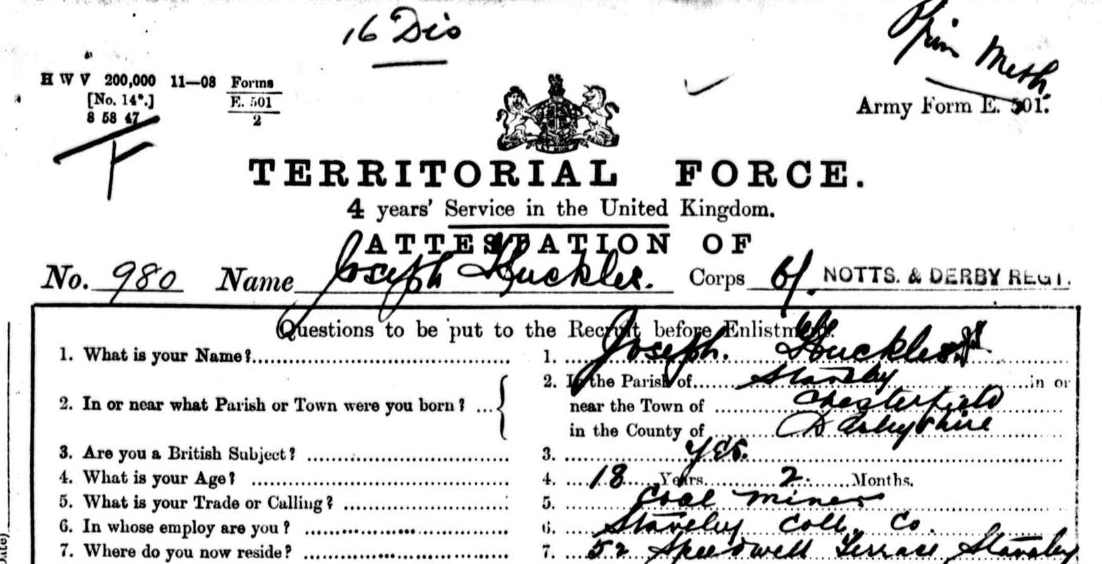 16 Dis
Prim Meth.
H W V 200,000 11—08 Forms
[No. 14*.] E. 501
8 58 47 2
Army Form E. 501.
TERRITORIAL FORCE.
4 years' Service in the United Kingdom.
ATTESTATION OF
No. 980 Name Joseph Huckler. Corps 6/. NOTTS. & DERBY REGT.
Questions to be put to the Recruit before Enlistment.
1. What is your Name? 1. Joseph. Huckler
2. In the Parish of Staveley in or
2. In or near what Parish or Town were you born? near the Town of Chesterfield
in the County of Derbyshire
3. Are you a British Subject? 3. Yes.
4. What is your Age? 4. 18 Years 2 Months.
5. What is your Trade or Calling? 5. Coal miner
6. In whose employ are you? 6. Staveley Coll. Co.
7. Where do you now reside? 7. 52 Speedwell Terrace Staveley